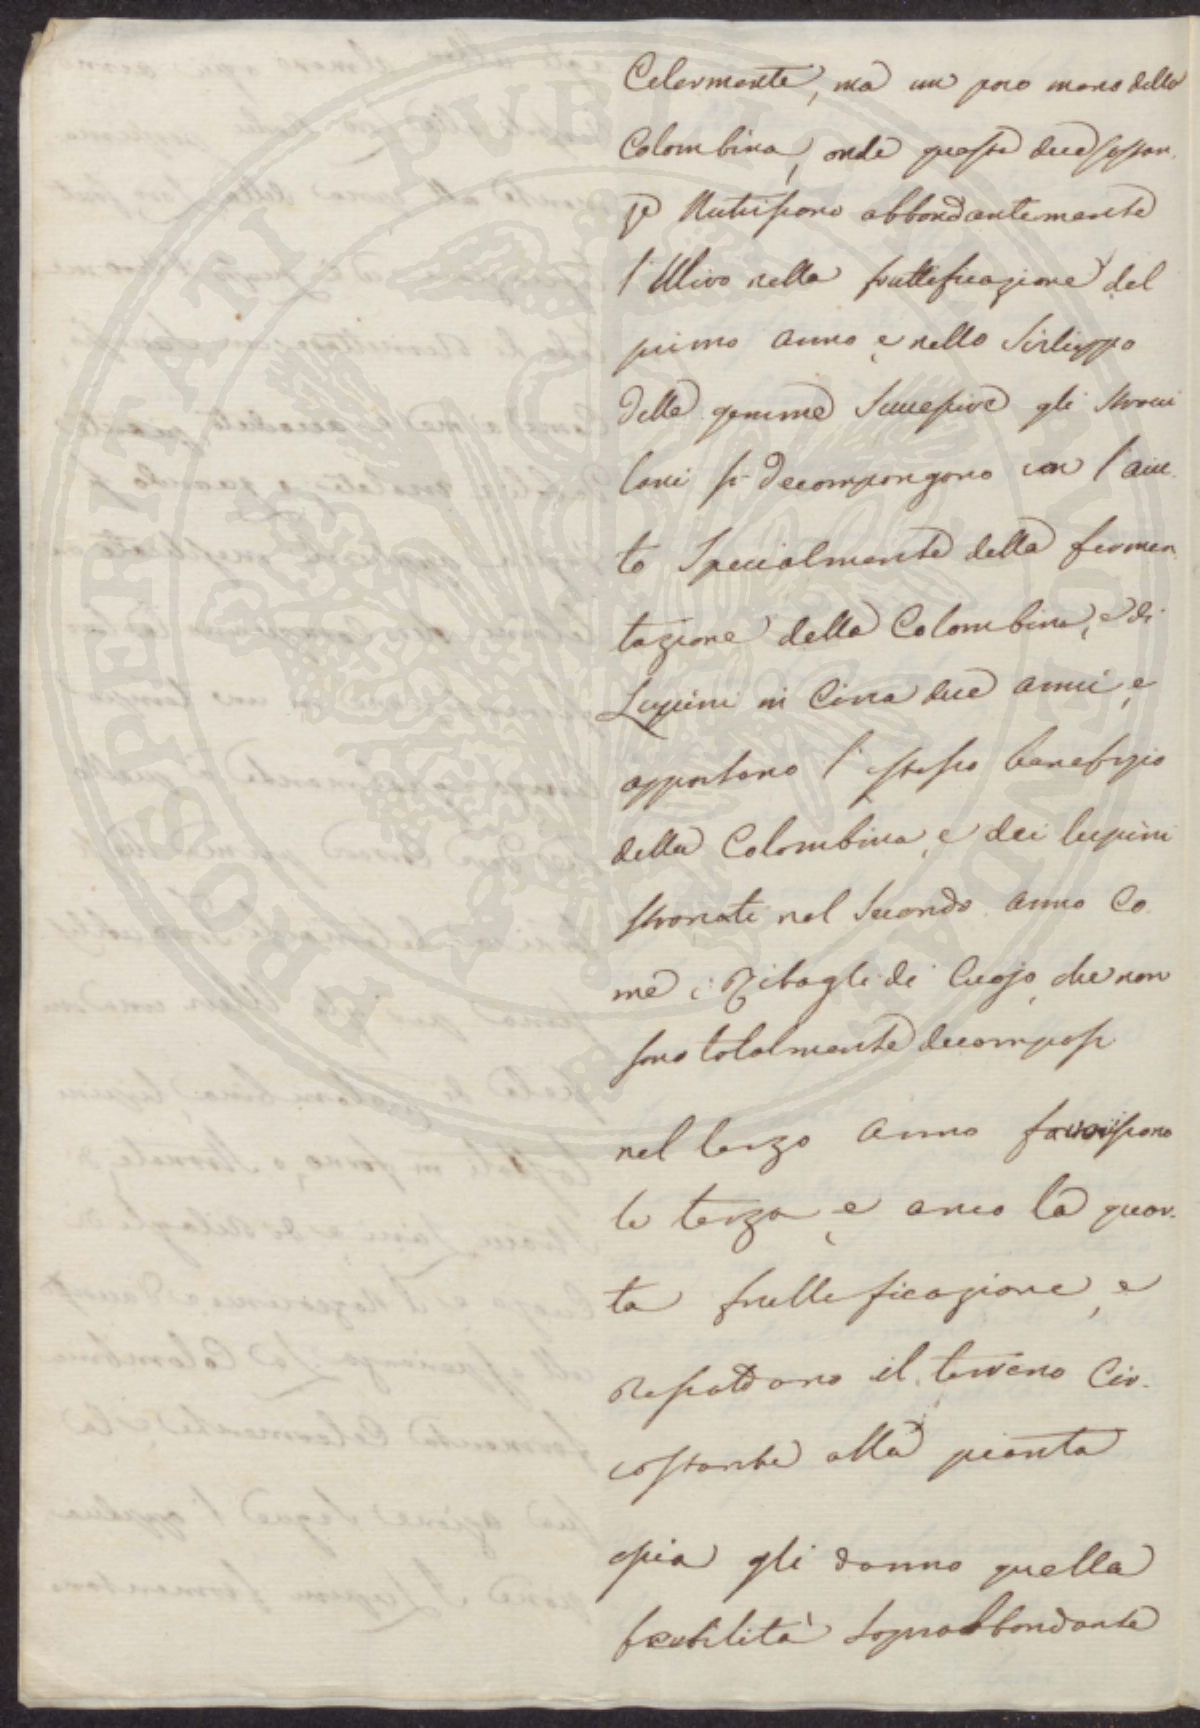 Celermente, ma un poco meno della
Colombina, onde queste due sostan-
ze Nutriscono abbondantemente
l'Ulivo nella fruttificazione del
primo anno e nello Sviluppo
delle gemme Successive gli Stracci
lani si decompongono con l'aiu-
to Specialmente della fermen-
tazione della Colombina, e di
Lupini in Circa due anni, e
apportano l'istesso benefizio
della Colombina, e dei lupini
stronati nel Secondo anno Co-
me i Ritagli di Cuojo, che non
sono totalmente decomposti
nel terzo anno favoriscono
la terza, e anco la quar-
ta fruttificazione, e
riscaldano il terreno Cir-
costante alla pianta
e gli danno quella
fertilità Soprabbondante
PROSPERITATI PUBLICAE